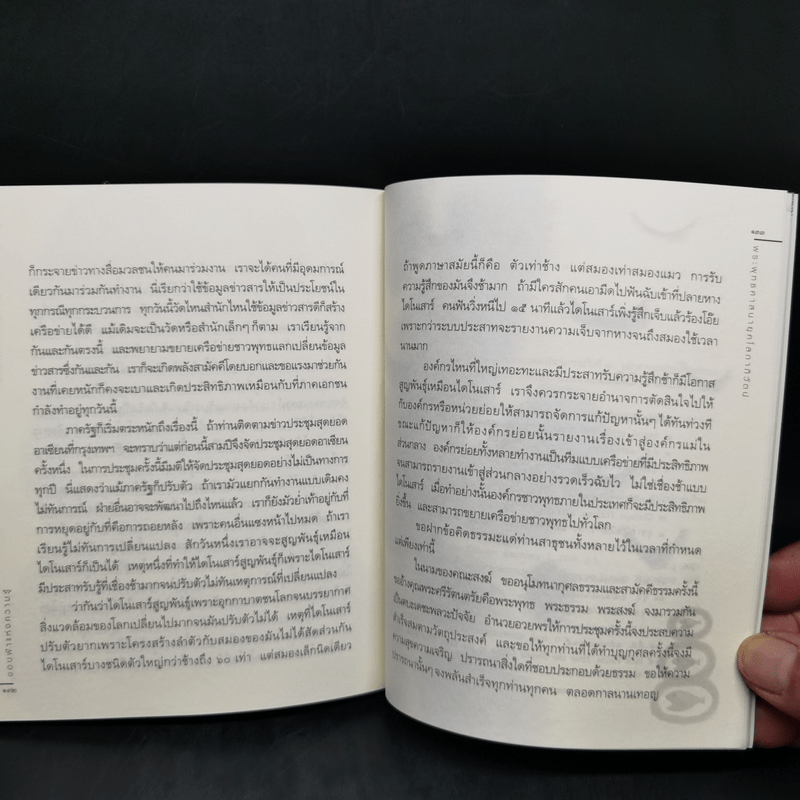 ก็กระจายข่าวทางสื่อมวลชนให้คนมาร่วมงาน เราจะได้คนที่มีอุดมการณ์
เดียวกันมาร่วมกันทำงาน นี่เรียกว่าใช้ข้อมูลข่าวสารให้เป็นประโยชน์ใน
ทุกกรณีทุกกระบวนการ ทุกวันนี้วัดไหนสำนักไหนใช้ข้อมูลข่าวสารดีก็สร้าง
เครือข่ายได้ดี แม้เดิมจะเป็นวัดหรือสำนักเล็กๆ ก็ตาม เราเรียนรู้จาก
กันและกันตรงนี้ และพยายามขยายเครือข่ายชาวพุทธแลกเปลี่ยนข้อมูล
ข่าวสารซึ่งกันและกัน เราก็จะเกิดพลังสามัคคีโดยบอกและขอแรงมาช่วยกัน
งานที่เคยหนักก็คงจะเบาและเกิดประสิทธิภาพเหมือนกับที่ภาคเอกชน
กำลังทำอยู่ทุกวันนี้
ภาครัฐก็เริ่มตระหนักถึงเรื่องนี้ ถ้าท่านติดตามข่าวประชุมสุดยอด
อาเซียนที่กรุงเทพฯ จะทราบว่าแต่ก่อนนี้สามปีจึงจัดประชุมสุดยอดอาเซียน
ครั้งหนึ่ง ในการประชุมครั้งนี้มีมติให้จัดประชุมสุดยอดอย่างไม่เป็นทางการ
ทุกปี นี่แสดงว่าแม้ภาครัฐก็ปรับตัว ถ้าเรามัวแยกกันทำงานแบบเดิมคง
ไม่ทันการณ์ ฝ่ายอื่นอาจจะพัฒนาไปถึงไหนแล้ว เราก็ยังมัวย่ำเท้าอยู่กับที่
การหยุดอยู่กับที่คือการถอยหลัง เพราะคนอื่นแซงหน้าไปหมด ถ้าเรา
เรียนรู้ไม่ทันการเปลี่ยนแปลง สักวันหนึ่งเราอาจจะสูญพันธุ์เหมือน
ไดโนเสาร์ก็เป็นได้ เหตุหนึ่งที่ทำให้ไดโนเสาร์สูญพันธุ์ก็เพราะไดโนเสาร์
มีประสาทรับรู้ที่เชื่องช้ามากจนปรับตัวไม่ทันเหตุการณ์ที่เปลี่ยนแปลง
ว่ากันว่าไดโนเสาร์สูญพันธุ์เพราะอุกกาบาตชนโลกจนบรรยากาศ
สิ่งแวดล้อมของโลกเปลี่ยนไปมากจนมันปรับตัวไม่ได้ เหตุที่ไดโนเสาร์
ปรับตัวยากเพราะโครงสร้างลำตัวกับสมองของมันไม่ได้สัดส่วนกัน
ไดโนเสาร์บางชนิดตัวใหญ่กว่าช้างถึง ๖๐ เท่า แต่สมองเล็กนิดเดียว
ถ้าพูดภาษาสมัยนี้ก็คือ ตัวเท่าช้าง แต่สมองเท่าสมองแมว การรับ
ความรู้สึกของมันจึงช้ามาก ถ้ามีใครสักคนเอามีดไปฟันฉับเข้าที่ปลายหาง
ไดโนเสาร์ คนฟันวิ่งหนีไป ๑๕ นาทีแล้วไดโนเสาร์เพิ่งรู้สึกเจ็บแล้วร้องโอ๊ย
เพราะกว่าระบบประสาทจะรายงานความเจ็บจากหางจนถึงสมองใช้เวลา
นานมาก
องค์กรไหนที่ใหญ่เทอะทะและมีประสาทรับความรู้สึกช้าก็มีโอกาส
สูญพันธุ์เหมือนไดโนเสาร์ เราจึงควรกระจายอำนาจการตัดสินใจไปให้
กับองค์กรหรือหน่วยย่อยให้สามารถจัดการแก้ปัญหานั้นๆ ได้ทันท่วงที
ขณะแก้ปัญหาก็ให้องค์กรย่อยนั้นรายงานเรื่องเข้าสู่องค์กรแม่ใน
ส่วนกลาง องค์กรย่อยทั้งหลายทำงานเป็นทีมแบบเครือข่ายที่มีประสิทธิภาพ
จนสามารถรายงานเข้าสู่ส่วนกลางอย่างรวดเร็วฉับไว ไม่ใช่เชื่องช้าแบบ
ไดโนเสาร์ เมื่อทำอย่างนั้นองค์กรชาวพุทธภายในประเทศก็จะมีประสิทธิภาพ
ยิ่งขึ้น และสามารถขยายเครือข่ายชาวพุทธไปทั่วโลก
ขอฝากข้อคิดธรรมะแด่ท่านสาธุชนทั้งหลายไว้ในเวลาที่กำหนด
แต่เพียงเท่านี้
ในนามของคณะสงฆ์ ขออนุโมทนากุศลธรรมและสามัคคีธรรมครั้งนี้
ขออ้างคุณพระศรีรัตนตรัยคือพระพุทธ พระธรรม พระสงฆ์ จงมารวมกัน
เป็นตบะเดชะพลวะปัจจัย อำนวยอวยพรให้การประชุมครั้งนี้จงประสบความ
สำเร็จสมตามวัตถุประสงค์ และขอให้ทุกท่านที่ได้ทำบุญกุศลครั้งนี้จงมี
ความสุขความเจริญ ปรารถนาสิ่งใดที่ชอบประกอบด้วยธรรม ขอให้ความ
ปรารถนานั้นๆ จงพลันสำเร็จทุกท่านทุกคน ตลอดกาลนานเทอญ
๑๓๓
พระพุทธศาสนายุคโลกาภิวัตน์
๑๓๒
ขอบฟ้าแห่งความรู้